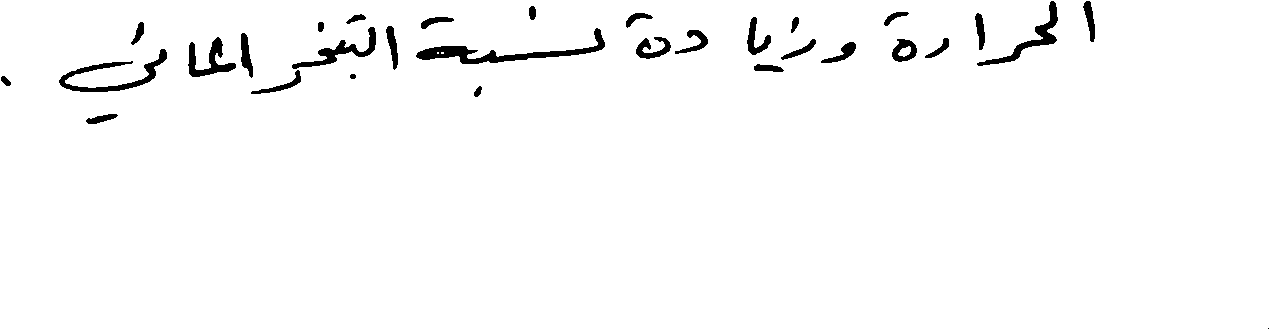 الحرارة وزيادة نسبة التبخر المائي .